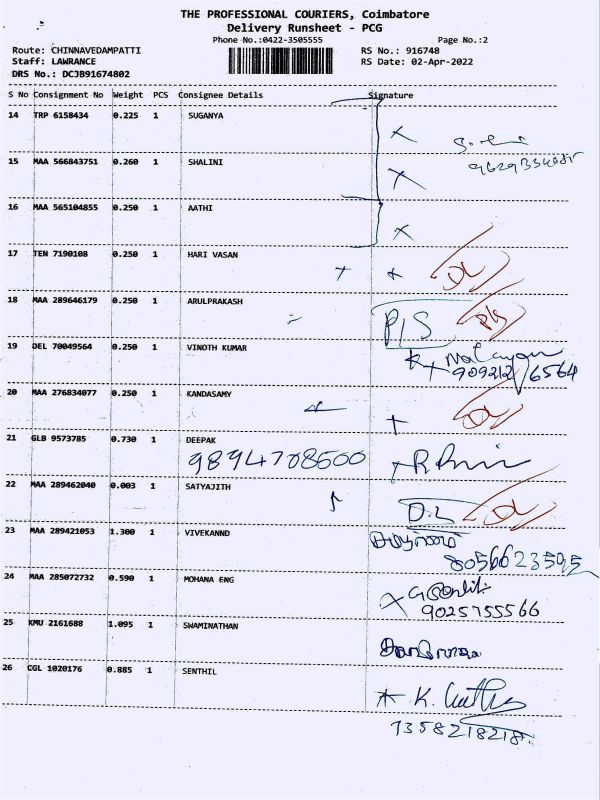 THE PROFESSIONAL COURIERS, Coimbatore
Delivery Runsheet - PCG
Phone No.:0422-3505555 Page No.:2
Route: CHINNAVEDAMPATTI RS No.: 916748
Staff: LAWRANCE RS Date: 02-Apr-2022
DRS No.: DCJB91674802
S No Consignment No Weight PCS Consignee Details Signature
14 TRP 6158434 0.225 1 SUGANYA
15 MAA 566843751 0.260 1 SHALINI
16 MAA 565104855 0.250 1 AATHI
17 TEN 7190108 0.250 1 HARI VASAN DL
18 MAA 289646179 0.250 1 ARULPRAKASH P/S
19 DEL 70049564 0.250 1 VINOTH KUMAR
909212 6564
20 MAA 276834077 0.250 1 KANDASAMY DL
21 GLB 9573785 0.730 1 DEEPAK
9894708600
22 MAA 289462040 0.003 1 SATYAJITH D.L DL
23 MAA 289421053 1.300 1 VIVEKANND
8056623595
24 MAA 285072732 0.590 1 MOHANA ENG
9025755566
25 KMU 2161688 1.095 1 SWAMINATHAN
26 CGL 1020176 0.885 1 SENTHIL
7358218218